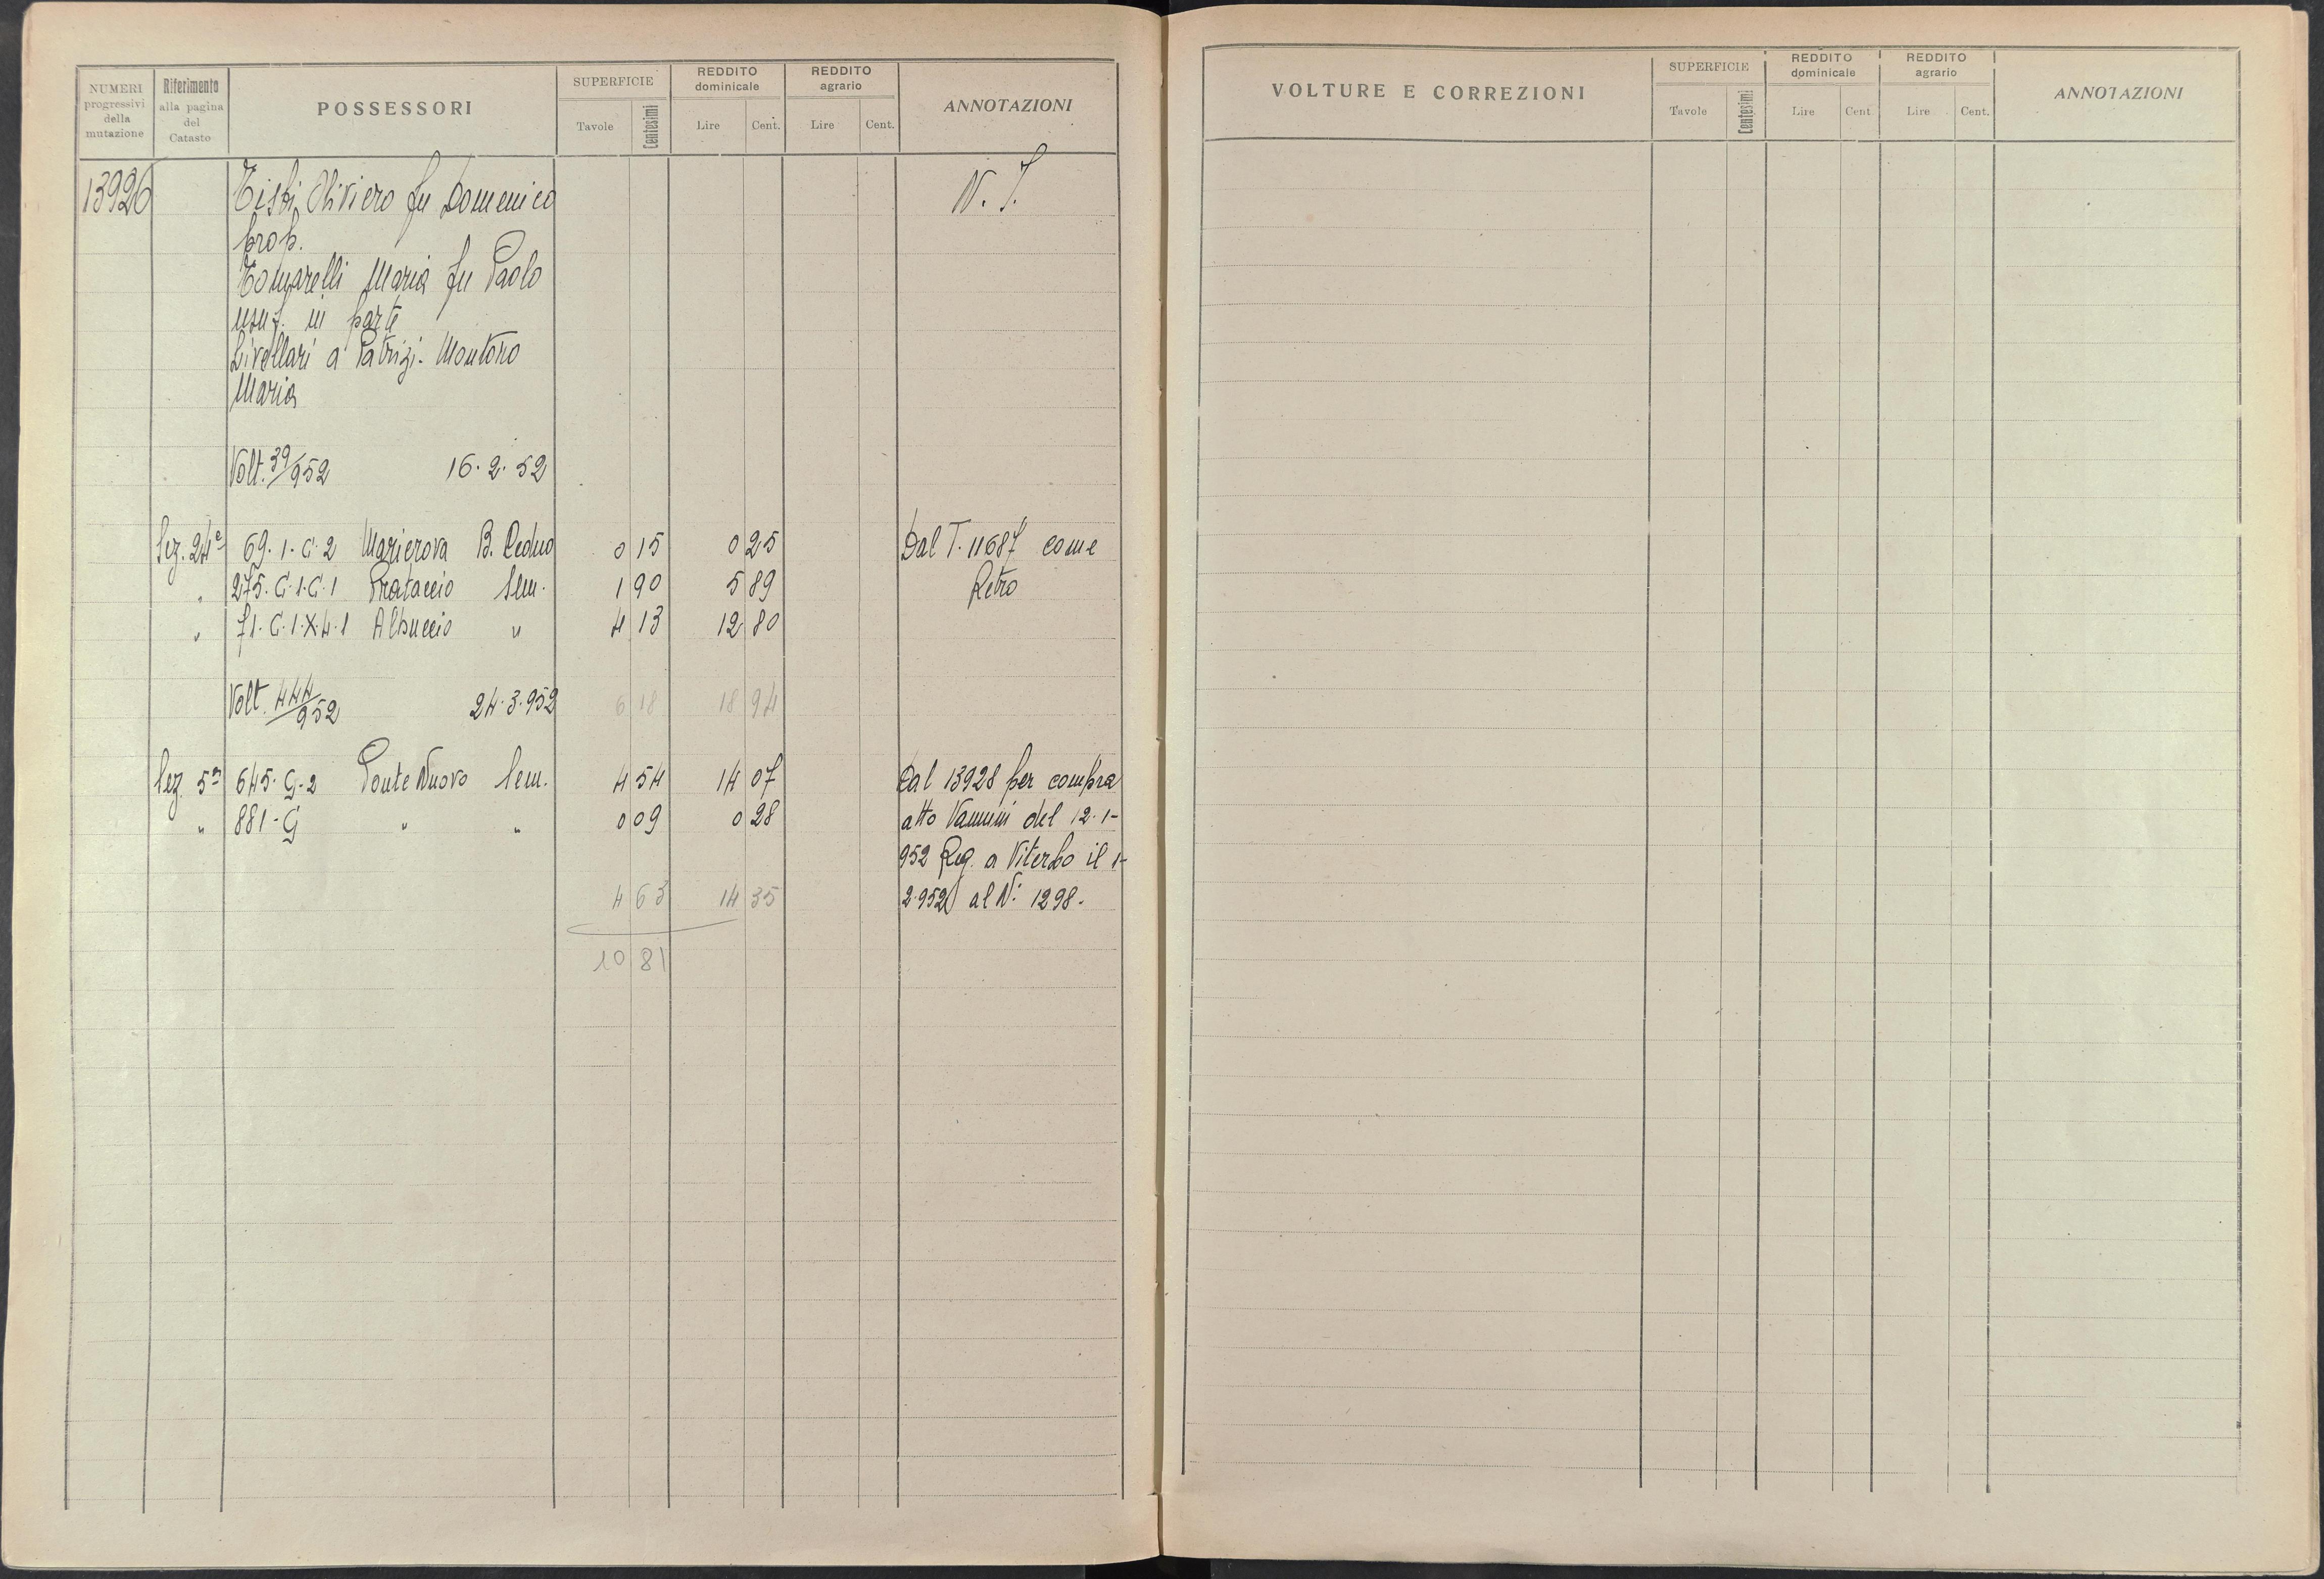 NUMERI progressivi della mutazione
Riferimento alla pagina del Catasto
POSSESSORI
SUPERFICIE
Tavole Centesimi
REDDITO dominicale
Lire Cent.
REDDITO agrario
Lire Cent.
ANNOTAZIONI
13926 Oliviero fu Domenico N. T.
prop.
Maria fu Paolo
usuf. in parte
Livellari a Patrizi-Montoro
Maria
Volt. 39/952 16.2.52
Sez. 24ª 69.1.C.2 B. Ceduo 0 15 0 25 Dal T. 11687 come
" 275.C.1.C.1 Prataccio Sem. 1 90 5 89 Retro
" 71.C.1.X.4.1 Albuccio " 4 13 12 80
Volt. 444/952 24.3.952 6 18 18 94
Sez. 5ª 645.G-2 Ponte Nuovo Sem. 4 54 14 07 Dal 13928 per compra
" 881-G " " 0 09 0 28 atto Vannini del 12-1-
952 Reg. a Viterbo il 1-
4 63 14 35 2-952 al N: 1298.
10 81
VOLTURE E CORREZIONI
SUPERFICIE
Tavole Centesimi
REDDITO dominicale
Lire Cent.
REDDITO agrario
Lire Cent.
ANNOTAZIONI